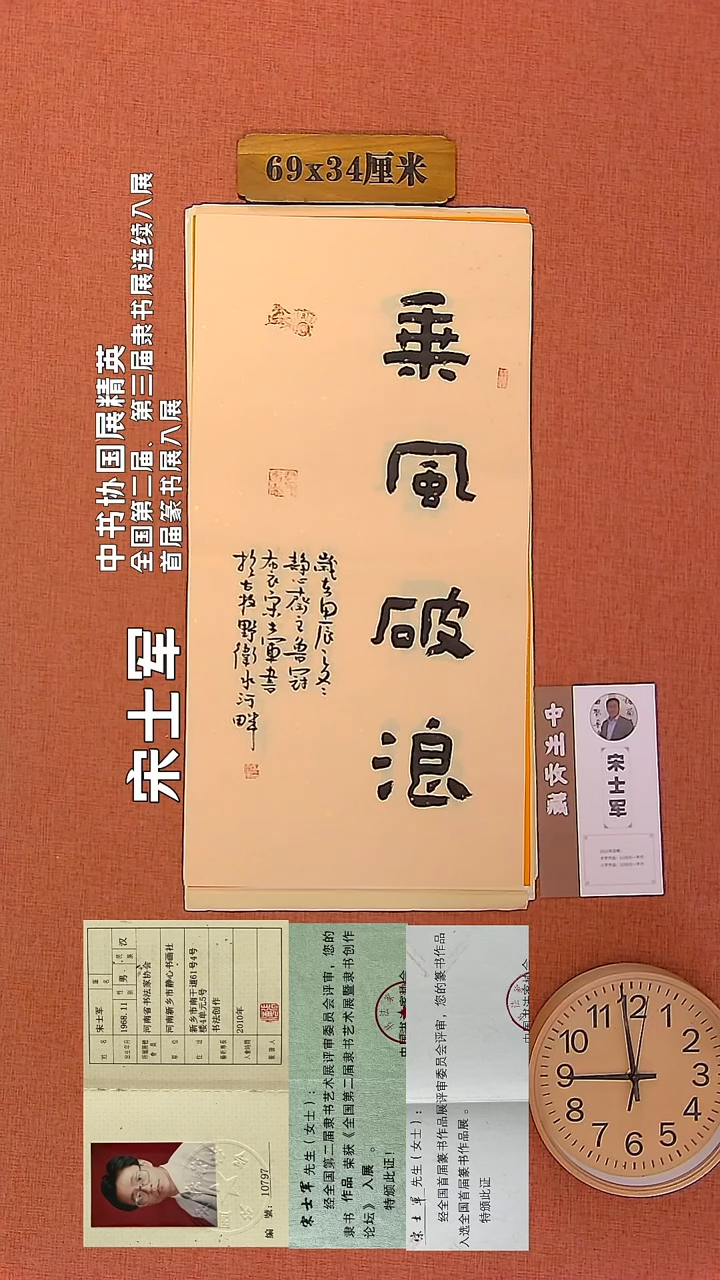 69x34厘米
中书协国展精英
全国第二届、第三届隶书展连续入展
首届篆书展入展
宋士军
乘
風
破
浪
歲在甲辰之冬
静心齋主魯寧
布衣宋士軍書
於古牧野衛水河畔
藏友生中
宋士军
姓 名 宋士军
出生年月 1968.11 性别 男 民族 汉
河南省书法家协会
单 位 河南新乡市静心书画社
住 址 新乡市南干道61号4号楼4单元5号
书法创作
入会时间 2010年
编 號: 10797
宋士军 先生(女士):
经全国第二届隶书艺术展评审委员会评审,您的
隶书 作品 荣获《全国第二届隶书艺术展暨隶书创作
论坛》入展 。
特颁此证!
宋士军 先生(女士):
经全国首届篆书作品展评审委员会评审,您的篆书作品
入选全国首届篆书作品展 。
特颁此证
12
1
2
3
4
5
6
7
8
9
10
11